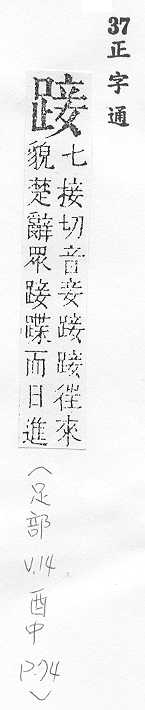 37正字通
踥
七接切音妾踥踥徃來
貌楚辭眾踥蹀而日進
(足部 V.14. 酉中 P.74)